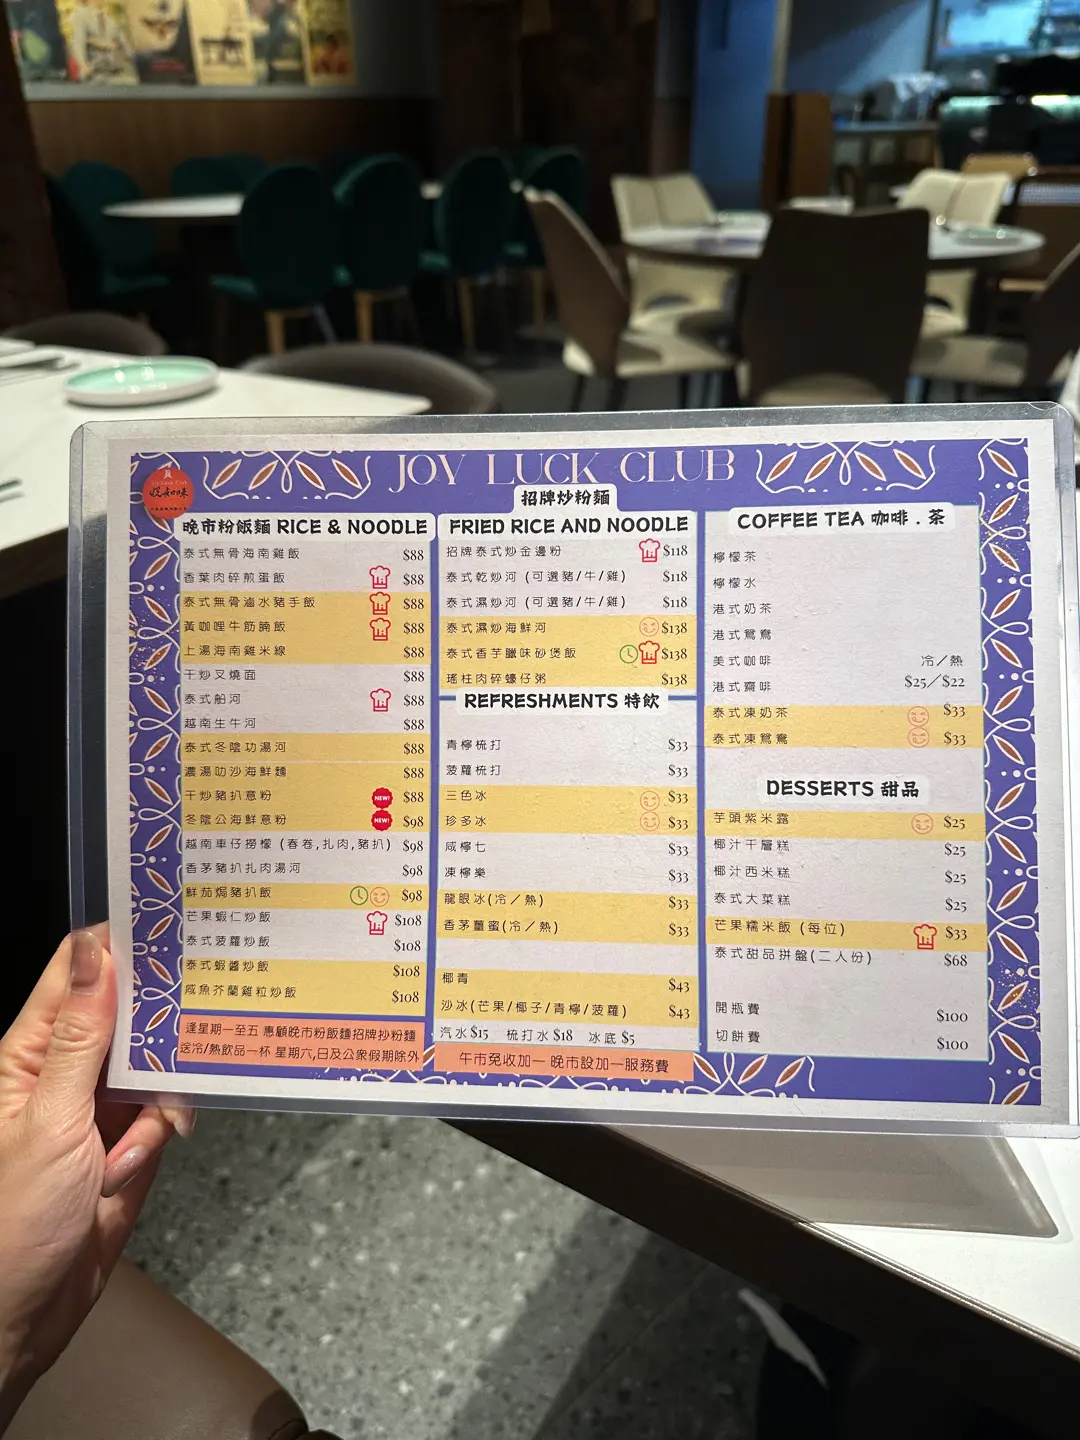 JOY LUCK CLUB
Joy Luck Club
悅和味
晚市粉飯麵 RICE & NOODLE
泰式無骨海南雞飯 $88
香葉肉碎煎蛋飯 $88
泰式無骨滷水豬手飯 $88
黃咖喱牛筋腩飯 $88
上湯海南雞米線 $88
干炒叉燒面 $88
泰式船河 $88
越南生牛河 $88
泰式冬陰功湯河 $88
濃湯叻沙海鮮麵 $88
干炒豬扒意粉 NEW! $88
冬陰公海鮮意粉 NEW! $98
越南車仔撈檬 (春卷,扎肉,豬扒) $98
香茅豬扒扎肉湯河 $98
鮮茄焗豬扒飯 $98
芒果蝦仁炒飯 $108
泰式菠蘿炒飯 $108
泰式蝦醬炒飯 $108
咸魚芥蘭雞粒炒飯 $108
逢星期一至五 惠顧晚市粉飯麵招牌抄粉麵
送冷/熱飲品一杯 星期六,日及公衆假期除外
招牌炒粉麵
FRIED RICE AND NOODLE
招牌泰式炒金邊粉 $118
泰式乾炒河 (可選豬/牛/雞) $118
泰式濕炒河 (可選豬/牛/雞) $118
泰式濕炒海鮮河 $138
泰式香芋臘味砂煲飯 $138
瑤柱肉碎蠔仔粥 $138
REFRESHMENTS 特飲
青檸梳打 $33
菠蘿梳打 $33
三色冰 $33
珍多冰 $33
咸檸七 $33
凍檸樂 $33
龍眼冰(冷／熱) $33
香茅薑蜜(冷／熱) $33
椰青 $43
沙冰(芒果/椰子/青檸/菠蘿) $43
汽水 $15 梳打水 $18 冰底 $5
午市免收加一 晚市設加一服務費
COFFEE TEA 咖啡 . 茶
檸檬茶
檸檬水
港式奶茶
港式鴛鴦
美式咖啡 冷／熱
港式齋啡 $25／$22
泰式凍奶茶 $33
泰式凍鴛鴦 $33
DESSERTS 甜品
芋頭紫米露 $25
椰汁千層糕 $25
椰汁西米糕 $25
泰式大菜糕 $25
芒果糯米飯 (每位) $33
泰式甜品拼盤(二人份) $68
開瓶費 $100
切餅費 $100